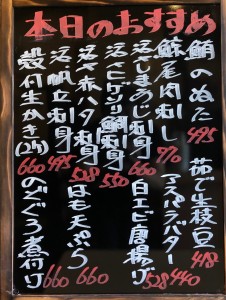 本日のおすすめ
鮪のぬた 495
鯨尾肉刺し 770
活しまあじ刺身 660
活さくらダイ鯛刺身 550
活赤ハタ刺身 528
活帆立刺身 495
殻付生かき(2ヶ) 660
茹で生枝豆 418
アスパラバター 440
白エビ唐揚げ 528
はも天ぷら 660
のどぐろ煮付け 660